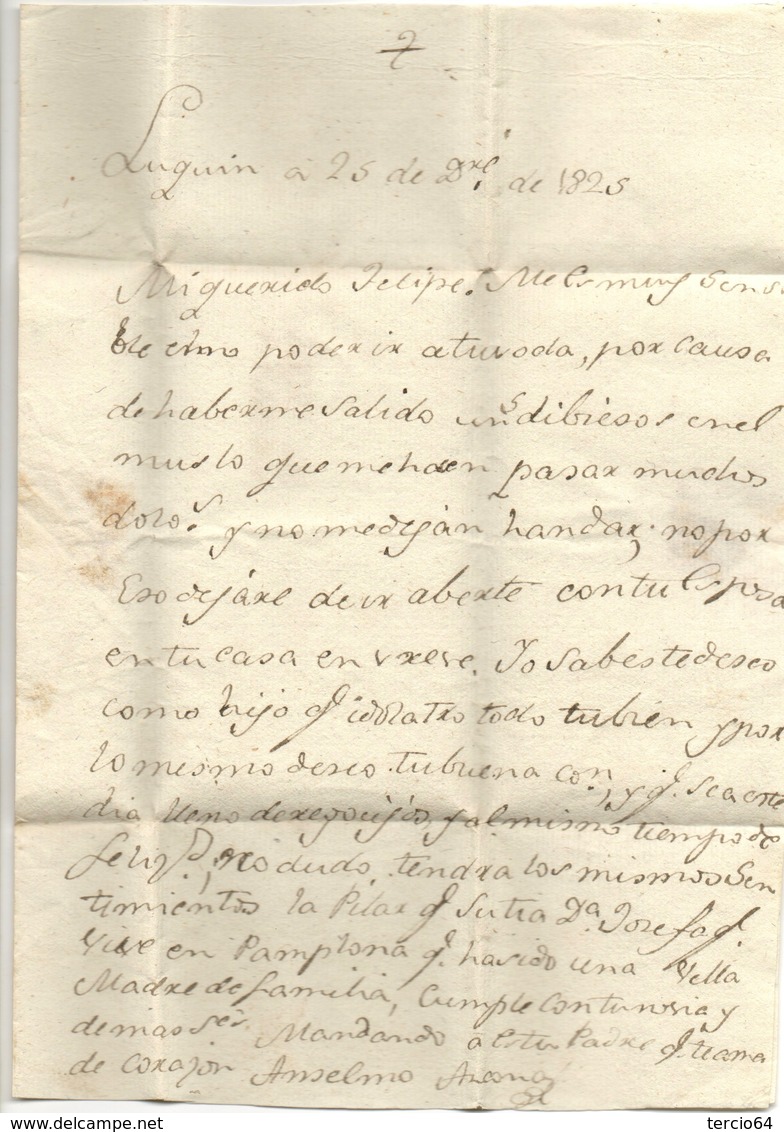 Luquin a 25 de Dre. de 1825
Mi querido Felipe. Me es muy Sensi
ble elno poder ir atuvoda, por causa
dehabermesalido uns dibiesos enel
muslo quemehacen pasar muchos
dolos. y nomedejan handar; nopor
Eso dejare deir aberte contu Esposa
entucasa en vreve. Yo Sabestedeseo
como hijo q. idolatro todo tubien ypor
lo mesmo deseo tubuena con, yq. sea este
dia lleno deregocijos, y almismo tiempo de
felizd., no dudo tendra los mismos Sen
timientos la Pilar q. Sutia Da. Josefa q.
Vive en Pamplona q. hasido una Vella
Madre defamilia, Cumple contunovia y
demas Ses. Mandando a Estu Padre q. teama
de corazon Anselmo
www.delcampe.net tercio64